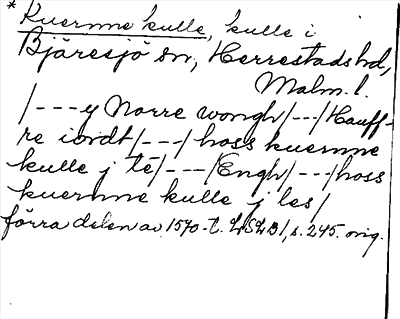 * Kuernne kulle, kulle i
Bjäresjö sn, Herrestads hd,
Malm. l.
/---y Norre wongh/---/Hauff-
re iordt/---/hoss kuernne
kulle j tē/---/Engh/---/hoss
kuernne kulle j les/
förra delen av 1570-t. LSLB1, s. 245. orig.